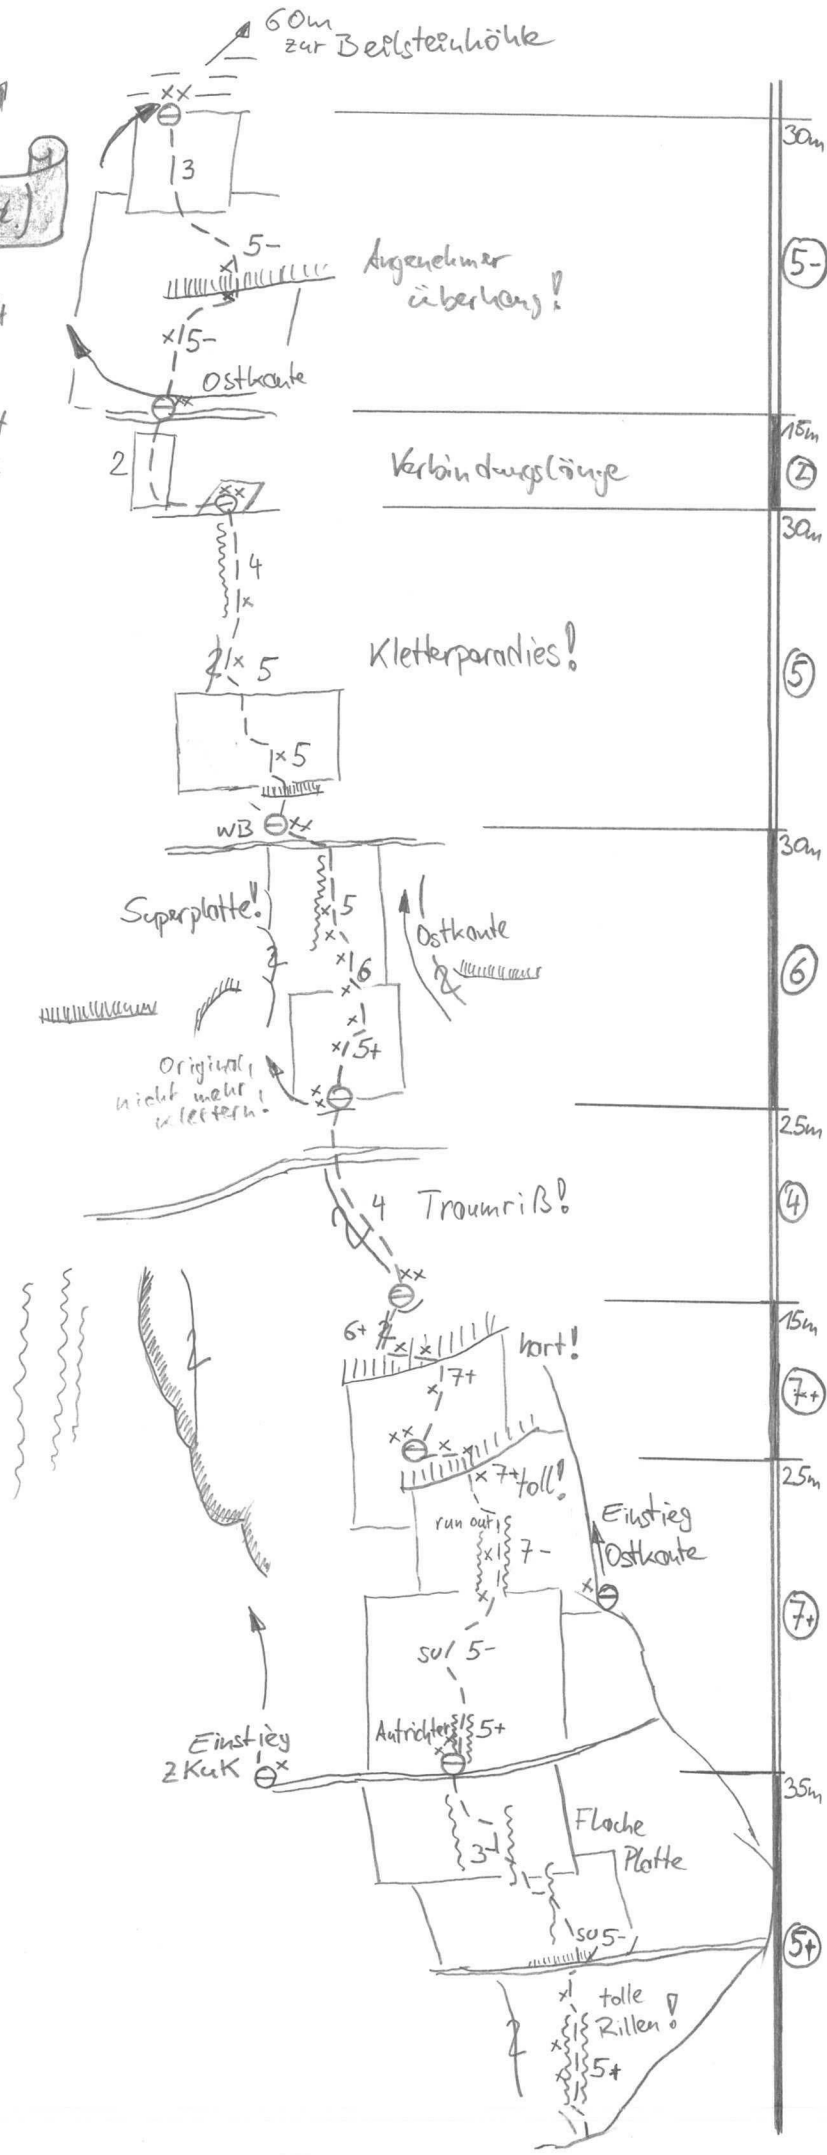 60m
zur Beilsteinhöhle
xx
30m
3
5-
5-
Angenehmer
überhang!
5-
Ostkante
15m
2
Verbindungslänge
2
xx
30m
4
5
Kletterparadies!
5
5
WB
xx
30m
Superplatte!
5
Ostkante
6
6
5+
Original,
nicht mehr
klettern!
25m
4
Traumriß!
4
xx
15m
6+
hart!
7+
7+
xx
25m
7+
toll!
run out
7-
Einstieg
Ostkante
7+
su
5-
Aufrichter
5+
Einstieg
ZKuK
35m
3-
Flache
Platte
su 5-
5+
tolle
Rillen!
5+